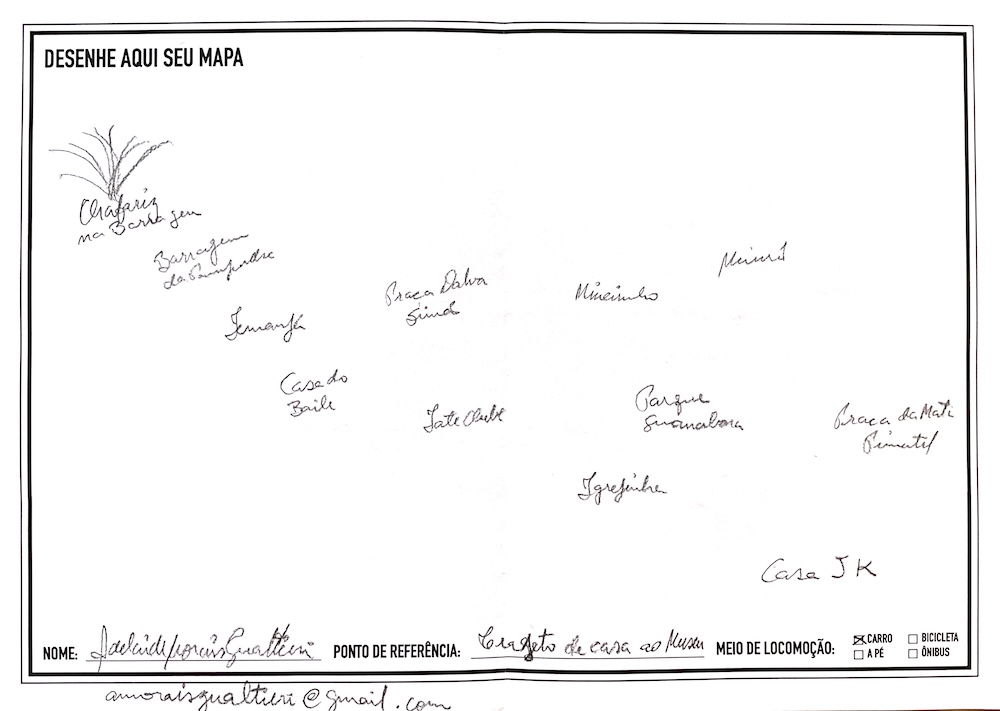 DESENHE AQUI SEU MAPA
Chafariz
na Barragem
Barragem
da Pampulha
Iemanjá
Praça Dalva
Simão
Mineirinho
Casa do
Baile
Iate Clube
Parque
Guanabara
Praça da
Igrejinha
Casa JK
NOME: Adelaide Morais Gualtieri
PONTO DE REFERÊNCIA: Trajeto de casa ao Museu
MEIO DE LOCOMOÇÃO:
CARRO
BICICLETA
A PÉ
ÔNIBUS
amoraisgualtieri@gmail.com